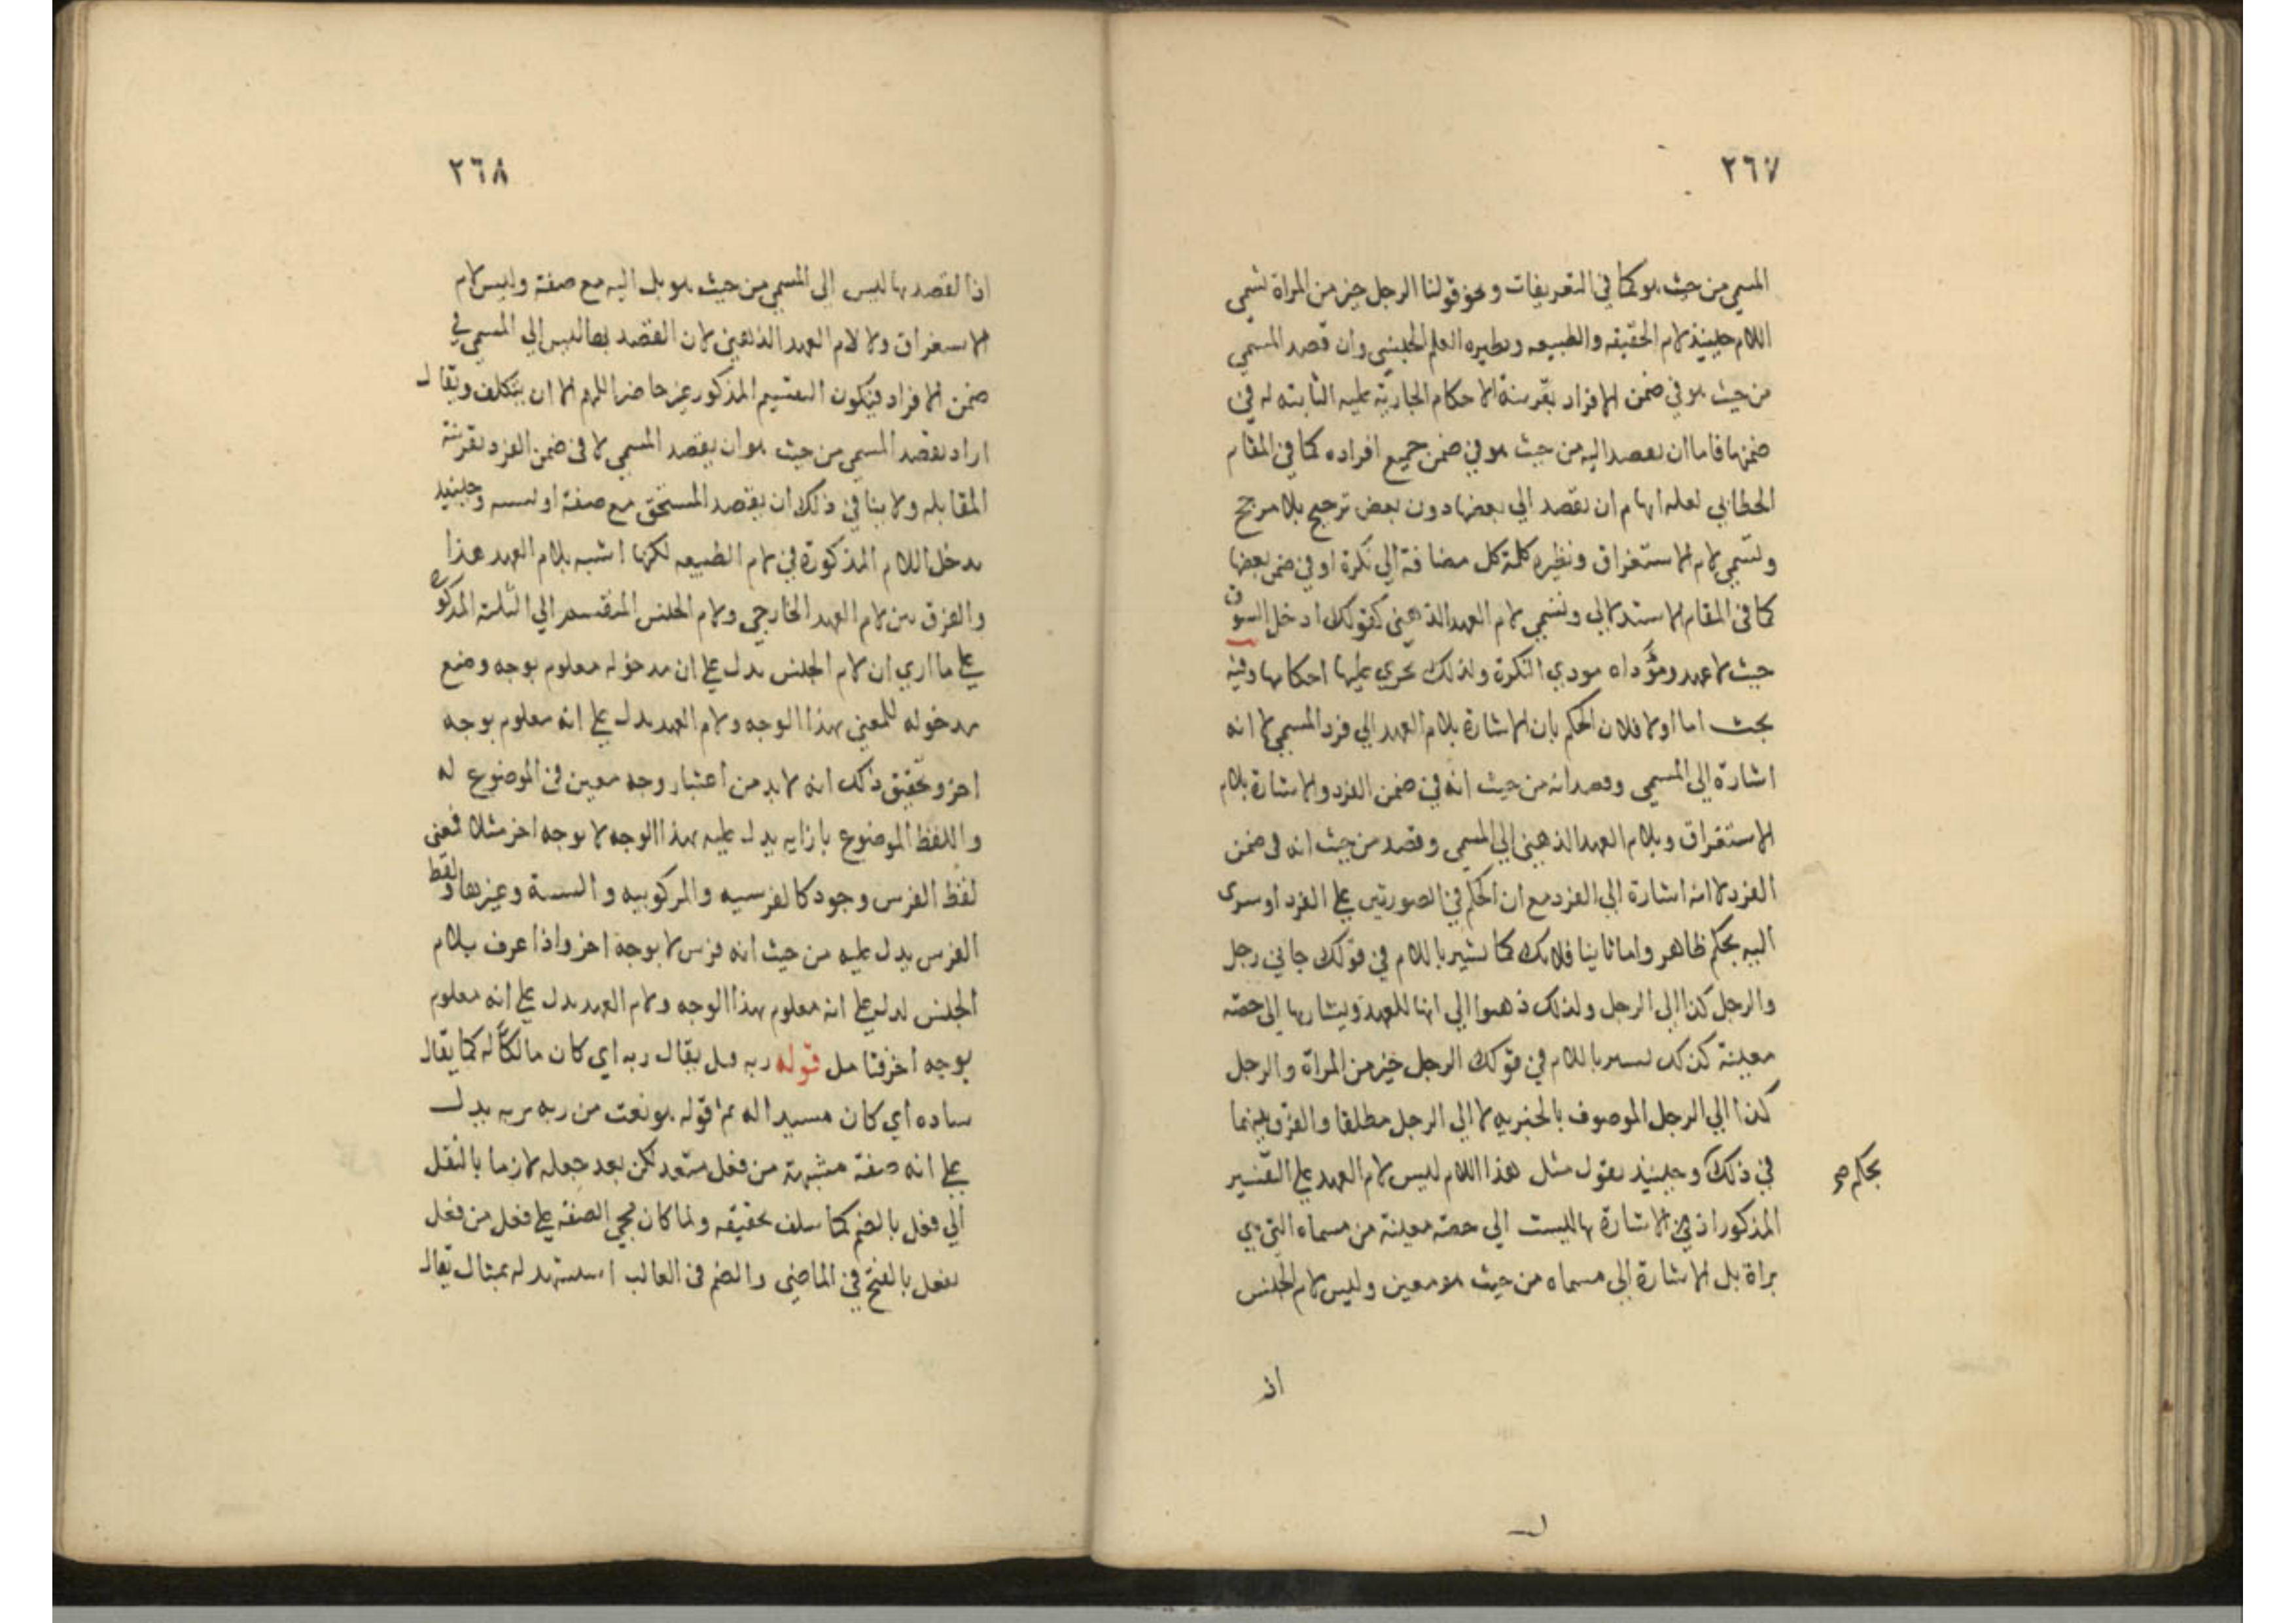 ٢٦٧
المسمي من حيث هو كما في التعريفات ونحو قولنا الرجل خير من المراة تسمي
اللام حينيذ لام الحقيقه والطبيعه ونظيره العلم الجنسي وان قصد المسمي
من حيث هو في ضمن الافراد بقرينة الاحكام الجارية عليه الثابته له في
ضمنها فاما ان يقصد اليه من حيث هو في ضمن جميع افراده كما في المقام
الخطابي لعله ايهام ان يقصد الي بعضها دون بعض ترجيح بلا مرجح
وتسمي لام الاستغراق ونظيره كلمة كل مضافة الي نكرة او في ضمن بعضها
كما في المقام الاستدلالي وتسمي لام العهد الذهني كقولك ادخل السوق
حيث لا عهد ومؤداه مودي النكرة ولذلك تجري عليها احكامها وفيه
بحث اما اولا فلان الحكم بان الاشارة بلام العهد الي فرد المسمي لا انه
اشارة الي المسمي وقصد انه من حيث انه في ضمن الفرد والاشارة بلام
الاستغراق وبلام العهد الذهني الي المسمي وقصد من حيث انه في ضمن
الفرد لا انه اشارة الي الفرد مع ان الحكم في الصورتين علي الفرد او سري
اليه بحكم ظاهر واما ثانيا فلانك كما تشير باللام في قولك جاني رجل
والرجل كذا الي الرجل ولذلك ذهبوا الي انها للعهد ويشار بها الي حصه
معينة كذلك تشير باللام في قولك الرجل خير من المراة والرجل
كذا الي الرجل الموصوف بالخبريه لا الي الرجل مطلقا والفرق بينهما
في ذلك وحينيذ نقول مثل هذا اللام ليس لام العهد علي التفسير
بحكم صح
المذكور اذ الاشارة بها ليست الي حصه معينة من مسماه التي هي
براة بل الاشارة الي مسماه من حيث هو معين وليس لام الجنس
اذ
٢٦٨
اذ القصد بها ليس الي المسمي من حيث هو بل اليه مع صفة وليس لام
الاستغراق ولا لام العهد الذهني لان القصد بها ليس الي المسمي في
ضمن الافراد فيكون التقسيم المذكور غير حاضر اللهم الا ان يتكلف ويقال
اراد بقصد المسمي من حيث هو ان يقصد المسمي لا في ضمن الفرد بقرينة
المقابله ولا ينافي ذلك ان يقصد المستحق مع صفة او نسبه وحينيذ
يدخل اللام المذكورة في لام الطبيعه لكنها اشبه بلام العهد هذا
والفرق بين لام العهد الخارجي ولام الجنس المنقسم الي الثلثة المذكورة
علي ما اري ان لام الجنس يدل علي ان مدخوله معلوم بوجه وضع
مدخوله للمعني بهذا الوجه ولام العهد يدل علي انه معلوم بوجه
اخر وتحقيق ذلك انه لا بد من اعتبار وجه معين في الموضوع له
واللفظ الموضوع بازايه يدل عليه بهذا الوجه لا بوجه اخر مثلا فمعني
لفظ الفرس وجود كالفرسيه والمركوبيه والنسبة وغيرها ولفظ
الفرس يدل عليه من حيث انه فرس لا بوجه اخر واذا عرف بلام
الجنس لدل علي انه معلوم بهذا الوجه ولام العهد يدل علي انه معلوم
بوجه اخر فتامل قوله ربه قيل يقال ربه اي كان مالكا له كما يقال
ساده اي كان مسيدا له ثم قوله هو نعت من ربه يربه يدل
علي انه صفة مشبهة من فعل متعد لكن بعد جعله لازما بالنقل
الي فعل بالضم كما سلف تحقيقه ولما كان مجي الصفه علي فعل من فعل
يفعل بالفتح في الماضي والضم في الغالب استشهد له بمثال يقال